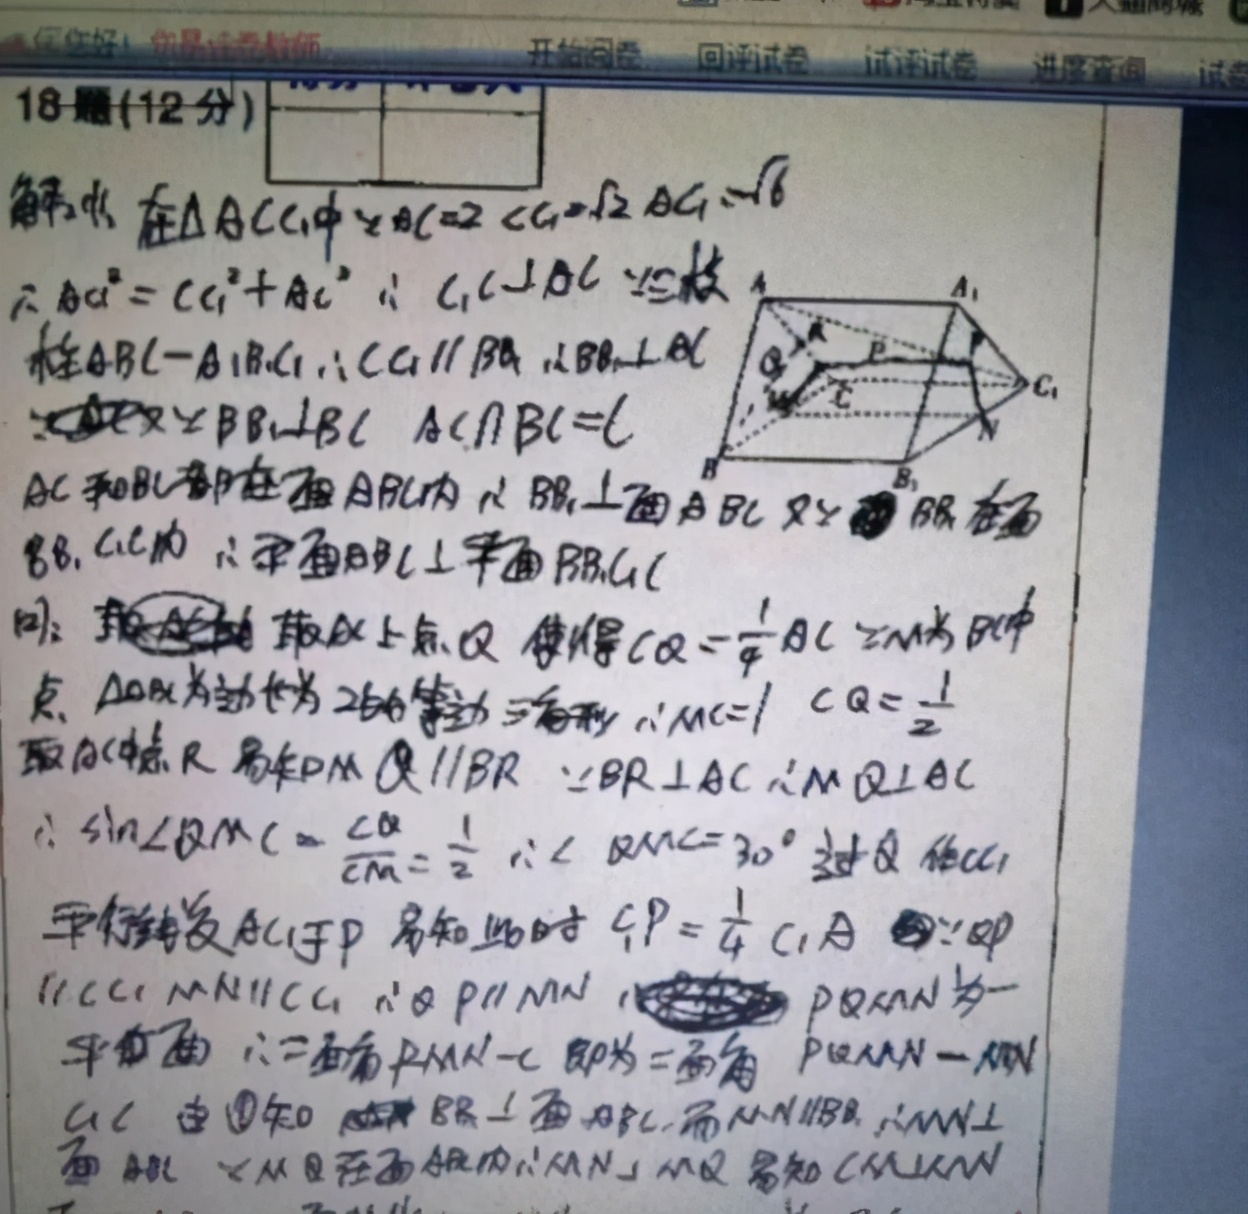 开始阅卷 回评试卷 试评试卷 进度查询 试卷
18题(12分)
在△ACC₁中∵AC=2 CC₁=√2 AC₁=√6
∴AC₁²=CC₁²+AC² ∴ C₁C⊥AC ∵三棱
柱ABC-A₁B₁C₁∴CC₁∥BB₁∴BB₁⊥AC
又∵BB₁⊥BC AC∩BC=C
AC和BC都在面ABC内∴BB₁⊥面ABC又∵BB₁在面
BB₁C₁C内 ∴平面ABC⊥平面BB₁C₁C
取AC上点Q 使得CQ=1/4 AC ∵M为BC中
点 △ABC为边长为2的等边三角形∴MC=1 CQ=1/2
取AC中点R 易知 MQ∥BR ∵BR⊥AC∴MQ⊥AC
∴sin∠QMC=CQ/CM=1/2 ∴∠QMC=30° 过Q作CC₁
平行线交AC₁于P 易知此时 C₁P=1/4 C₁A ∵QP
∥CC₁ MN∥CC₁ ∴QP∥MN PQMN为一
平面 ∴二面角PMN-C 即为二面角 PQMN-MN
C₁C 由①知 BB₁⊥面ABC 而MN∥BB₁∴MN⊥
面ABC ∵MQ在面ABC内∴MN⊥MQ 易知CM⊥MN
A
A₁
R
P
Q
C
C₁
M
N
B
B₁